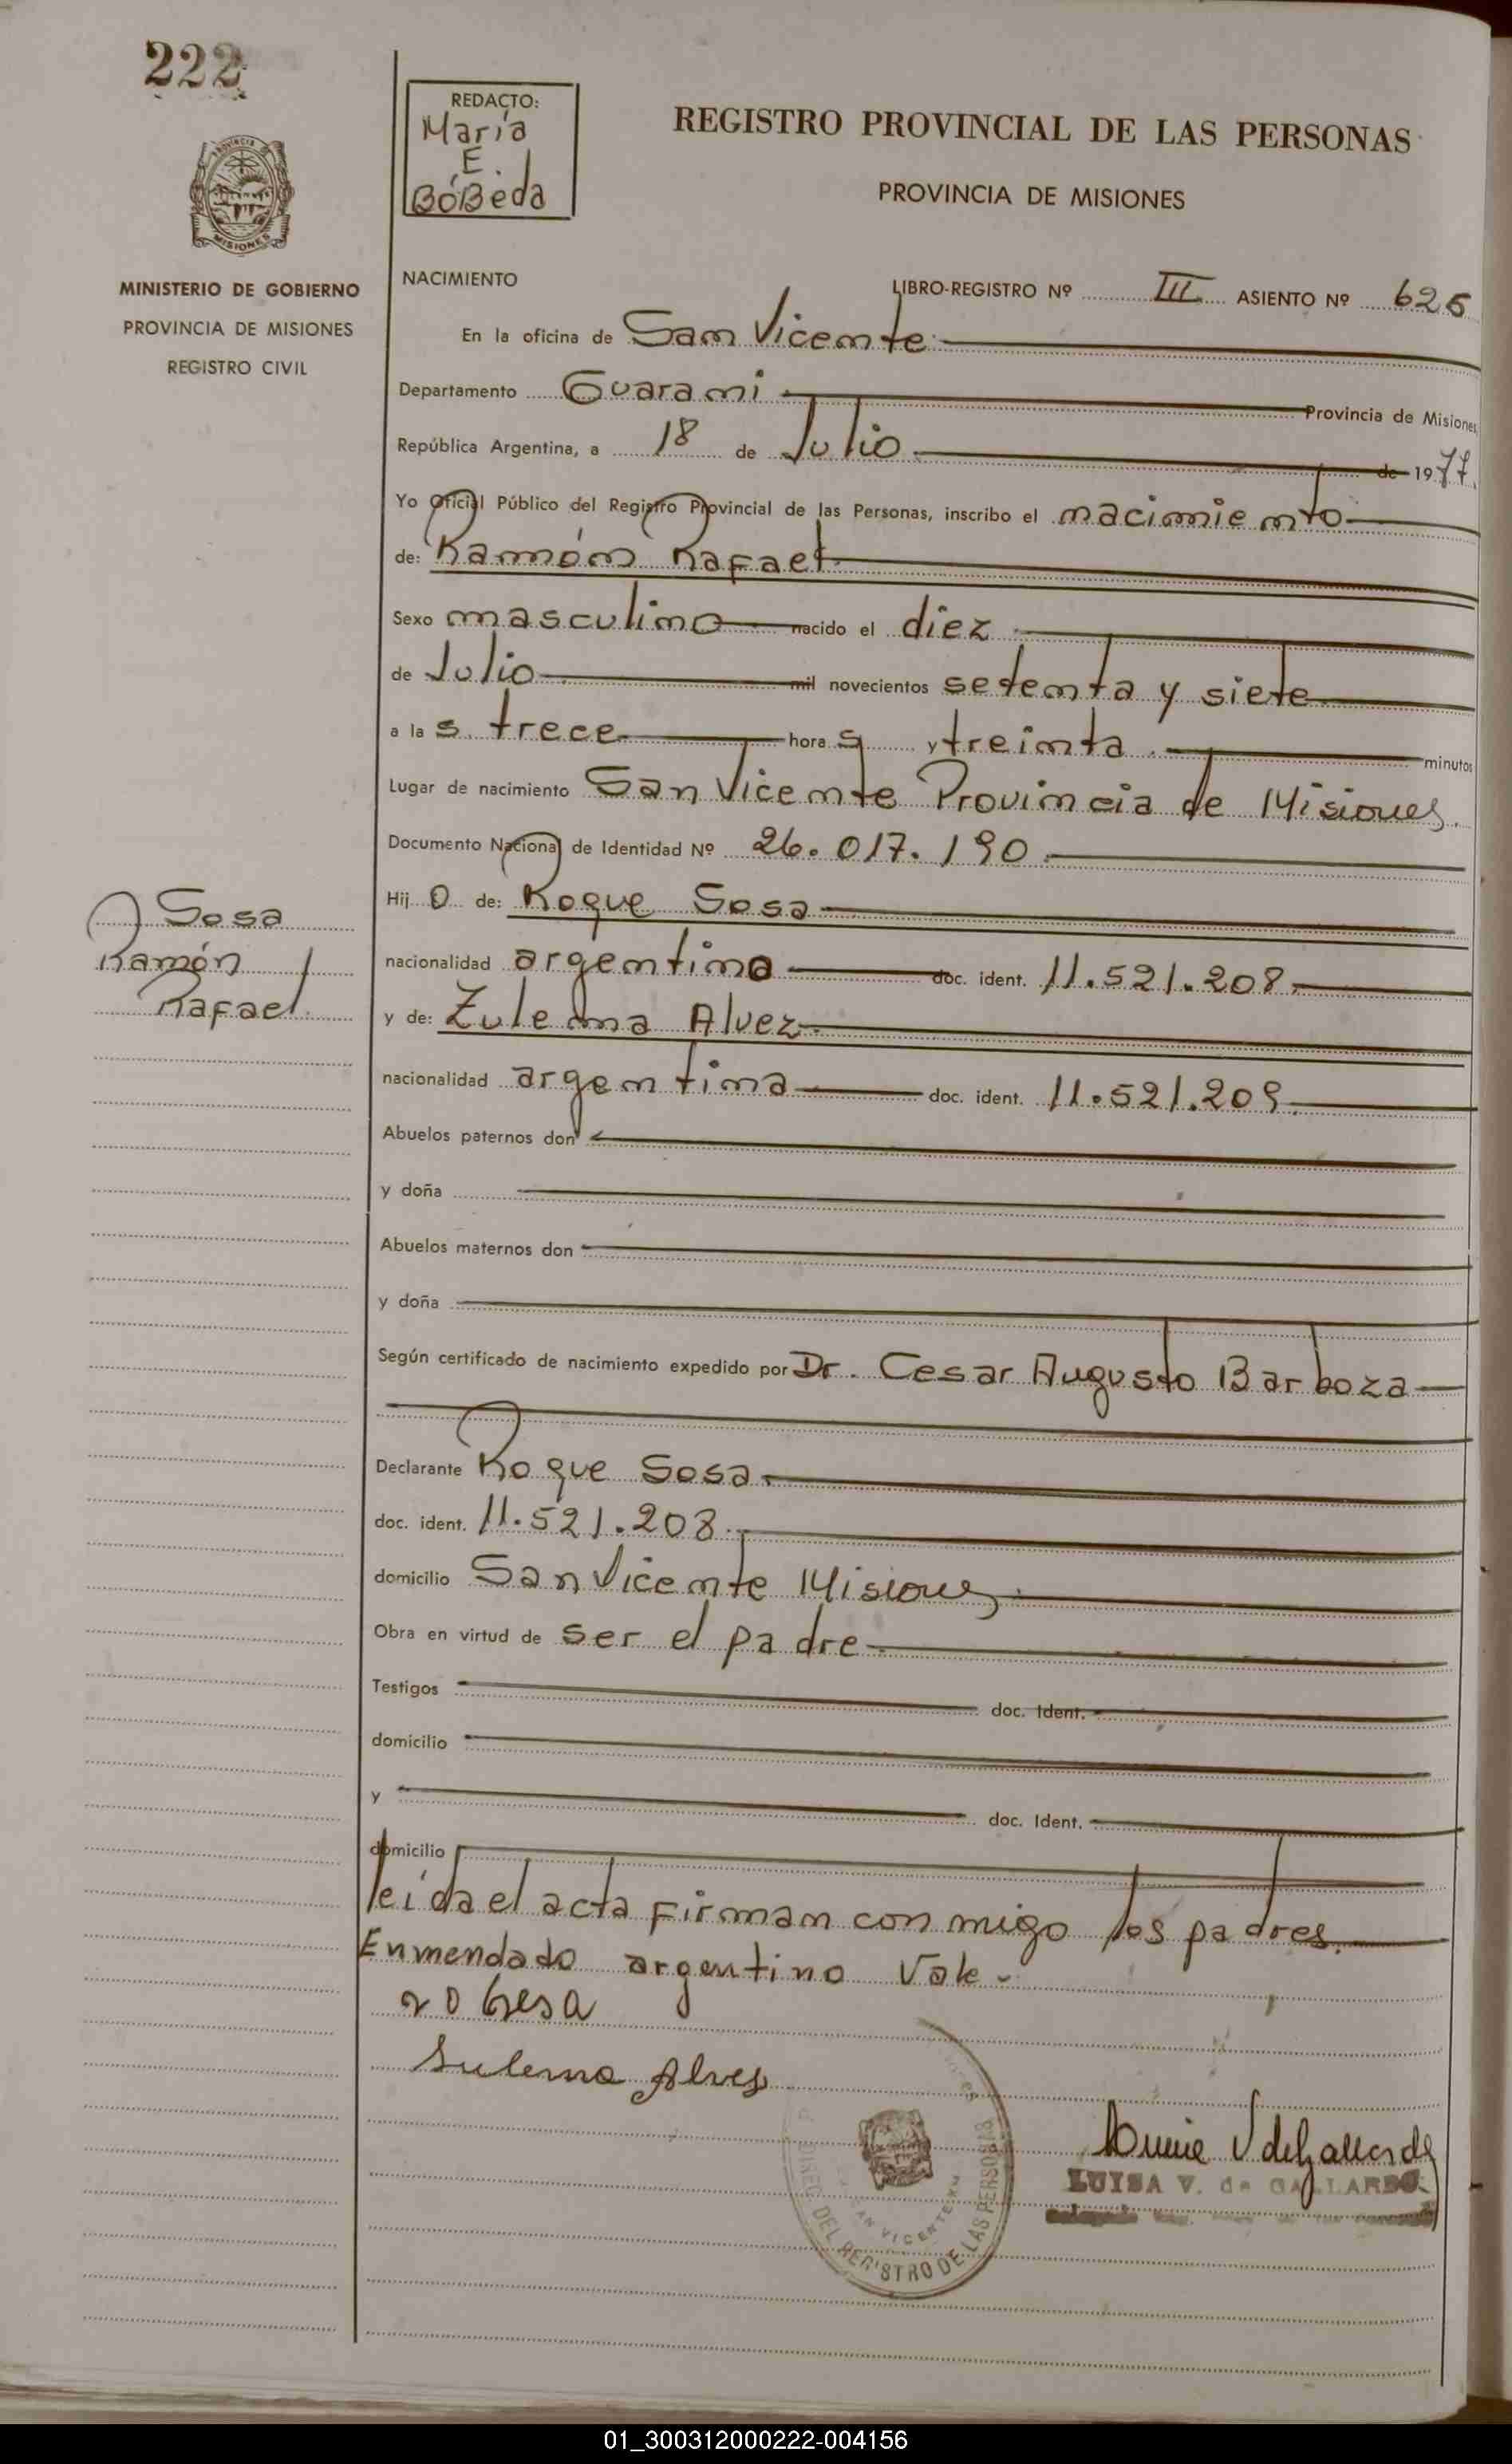 222
REDACTO:
María
E.
BóBeda
REGISTRO PROVINCIAL DE LAS PERSONAS
PROVINCIA DE MISIONES
PROVINCIA DE
MISIONES
MINISTERIO DE GOBIERNO
PROVINCIA DE MISIONES
REGISTRO CIVIL
NACIMIENTO LIBRO-REGISTRO Nº III ASIENTO Nº 625
En la oficina de San Vicente
Departamento Guarani Provincia de Misiones
República Argentina, a 18 de Julio de 1977.
Yo Oficial Público del Registro Provincial de las Personas, inscribo el nacimiento
de: Ramón Rafael
Sexo masculino nacido el diez
de Julio mil novecientos setenta y siete
a la s trece hora s y treinta minutos
Lugar de nacimiento San Vicente Provincia de Misiones.
Documento Nacional de Identidad Nº 26.017.190
Hij o de: Roque Sosa
nacionalidad argentino doc. ident. 11.521.208
y de: Zulema Alvez
nacionalidad argentina doc. ident. 11.521.209
Sosa
Ramón
Rafael.
Abuelos paternos don
y doña
Abuelos maternos don
y doña
Según certificado de nacimiento expedido por Dr. Cesar Augusto Barboza
Declarante Roque Sosa
doc. ident. 11.521.208
domicilio San Vicente Misiones
Obra en virtud de ser el padre
Testigos doc. Ident.
domicilio
y doc. Ident.
domicilio
leida el acta Firman con migo los padres.
Enmendado argentino Vale
Sulema Alves
LUISA V. de GALLARDO
DEL REGISTRO DE LAS PERSONAS
SAN VICENTE
01_300312000222-004156